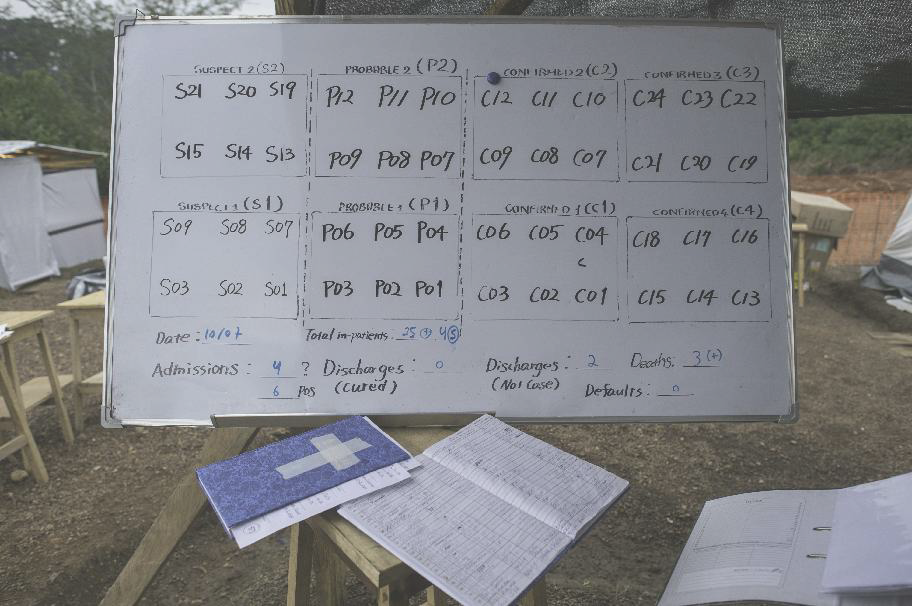 SUSPECT 2 (S2) PROBABLE 2 (P2) CONFIRMED 2 (C2) CONFIRMED 3 (C3)
S21 S20 S19 P12 P11 P10 C12 C11 C10 C24 C23 C22
S15 S14 S13 P09 P08 P07 C09 C08 C07 C21 C20 C19
SUSPECT 1 (S1) PROBABLE 1 (P1) CONFIRMED 1 (C1) CONFIRMED 4 (C4)
S09 S08 S07 P06 P05 P04 C06 C05 C04 C18 C17 C16
C
S03 S02 S01 P03 P02 P01 C03 C02 C01 C15 C14 C13
Date: 10/07 Total in-patients: 25 (+) 4 (S)
Admissions: 4 ? Discharges: 0 Discharges: 2 Deaths: 3 (+)
6 Pos (Cured) (Not Case) Defaults: 0